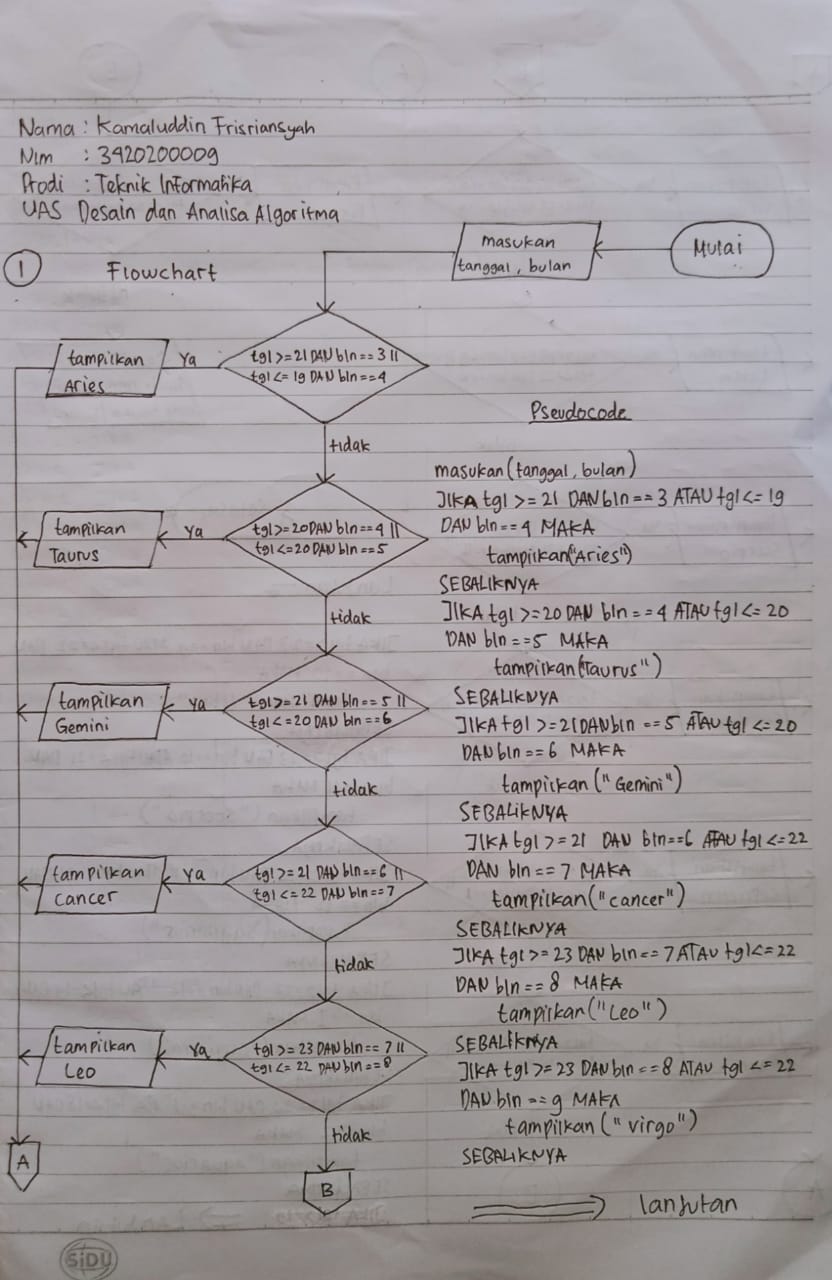 Nama : Kamaluddin Frisriansyah
Nim : 3420200009
Prodi : Teknik Informatika
UAS Desain dan Analisa Algoritma
1
Flowchart
Mulai
masukan
tanggal, bulan
tgl >= 21 DAN bln == 3 ||
tgl <= 19 DAN bln == 4
Ya
tampilkan
Aries
tidak
tgl >= 20 DAN bln == 4 ||
tgl <= 20 DAN bln == 5
Ya
tampilkan
Taurus
tidak
tgl >= 21 DAN bln == 5 ||
tgl <= 20 DAN bln == 6
Ya
tampilkan
Gemini
tidak
tgl >= 21 DAN bln == 6 ||
tgl <= 22 DAN bln == 7
Ya
tampilkan
cancer
tidak
tgl >= 23 DAN bln == 7 ||
tgl <= 22 DAN bln == 8
Ya
tampilkan
Leo
tidak
A
B
Pseudocode
masukan (tanggal, bulan)
JIKA tgl >= 21 DAN bln == 3 ATAU tgl <= 19
DAN bln == 4 MAKA
tampilkan("Aries")
SEBALIKNYA
JIKA tgl >= 20 DAN bln == 4 ATAU tgl <= 20
DAN bln == 5 MAKA
tampilkan(Taurus")
SEBALIKNYA
JIKA tgl >= 21 DAN bln == 5 ATAU tgl <= 20
DAN bln == 6 MAKA
tampilkan ("Gemini")
SEBALIKNYA
JIKA tgl >= 21 DAN bln == 6 ATAU tgl <= 22
DAN bln == 7 MAKA
tampilkan("cancer")
SEBALIKNYA
JIKA tgl >= 23 DAN bln == 7 ATAU tgl <= 22
DAN bln == 8 MAKA
tampilkan("Leo")
SEBALIKNYA
JIKA tgl >= 23 DAN bln == 8 ATAU tgl <= 22
DAN bln == 9 MAKA
tampilkan ("virgo")
SEBALIKNYA
lanjutan
SiDU